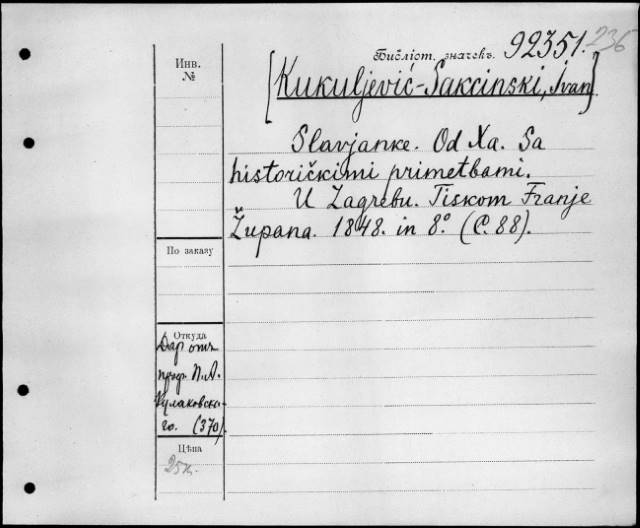 Библіот. значекъ. 92351. 236
Инв.
№
[Kukuljević-Sakcinski, Ivan]
Slavjanke. Od Xa. Sa
historičkimi primetbami.
U Zagrebu. Tiskom Franje
Župana. 1848. in 8º. (C. 88).
По заказу
Откуда
Даръ отъ
проф. П. А.
Кулаковска-
го. (370).
Цѣна
25к.